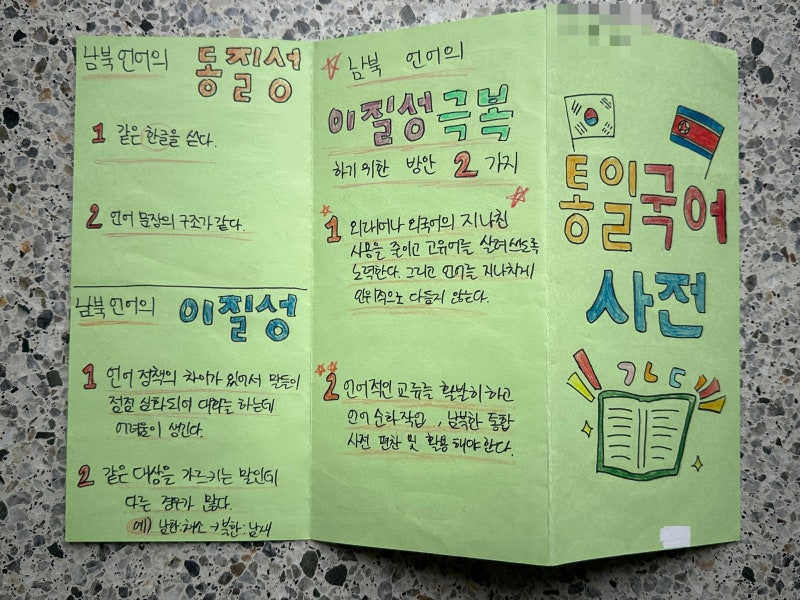 남북 언어의 동질성
1 같은 한글을 쓴다.
2 언어 문장의 구조가 같다.
남북 언어의 이질성
1 언어 정책의 차이가 있어서 말들이
점점 심화되어 대화를 하는데
어려움이 생긴다.
2 같은 대상을 가르키는 말인데
다른 경우가 많다.
예) 남한:채소 → 북한:남새
남북 언어의
이질성 극복
하기 위한 방안 2 가지
1 외래어나 외국어의 지나친
사용을 줄이고 고유어를 살려 쓰도록
노력한다. 그리고 언어를 지나치게
인위적으로 다듬지 않는다.
2 언어적인 교류를 활발히 하고
언어 순화 작업, 남북한 통합
사전 편찬 및 활용 해야 한다.
통일국어
사전
ㄱㄴㄷ